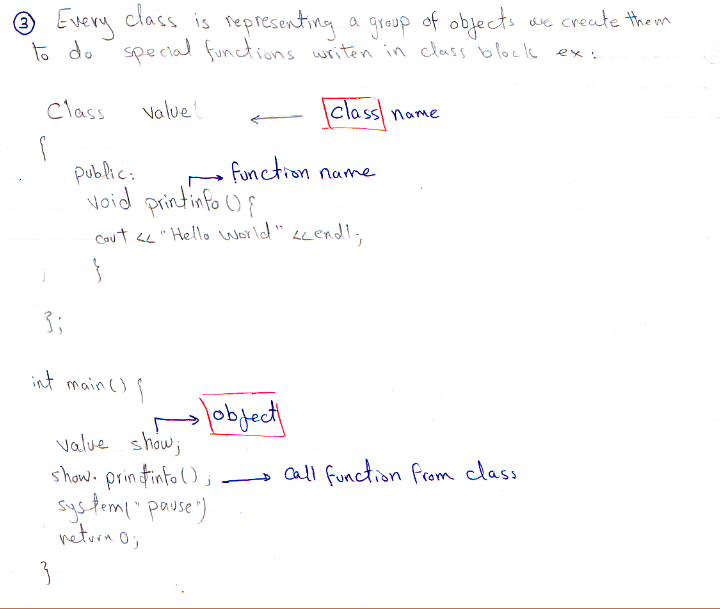 ③ Every class is representing a group of objects we create them
to do special functions writen in class block ex:
Class value ← class name
{
public: → function name
void printinfo () {
cout << "Hello World" << endl;
}
};
int main() {
→ object
value show;
show. printinfo(); → call function from class
system("pause")
return 0;
}